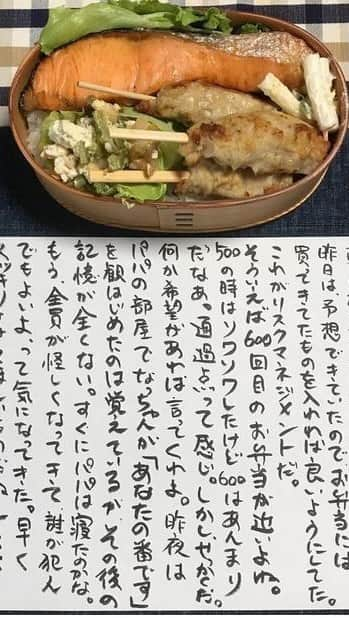 昨日は予想できていたのでお弁当には
買ってきてたものを入れれば良いようにしてた。
これがリスクマネジメントだ。
そういえば600回目のお弁当が近いよね。
500の時はソワソワしたけど600はあんまり
だなあ。通過点って感じ。しかしせっかくだ。
何か希望があれば言ってくれよ。昨夜は
パパの部屋でなっちゃんが「あなたの番です」
を観はじめたのは覚えているが、その後の
記憶が全くない。すぐにパパは寝たのかな。
もう、全員が怪しくなってきて、誰が犯人
でもよいよって気になってきた。早く